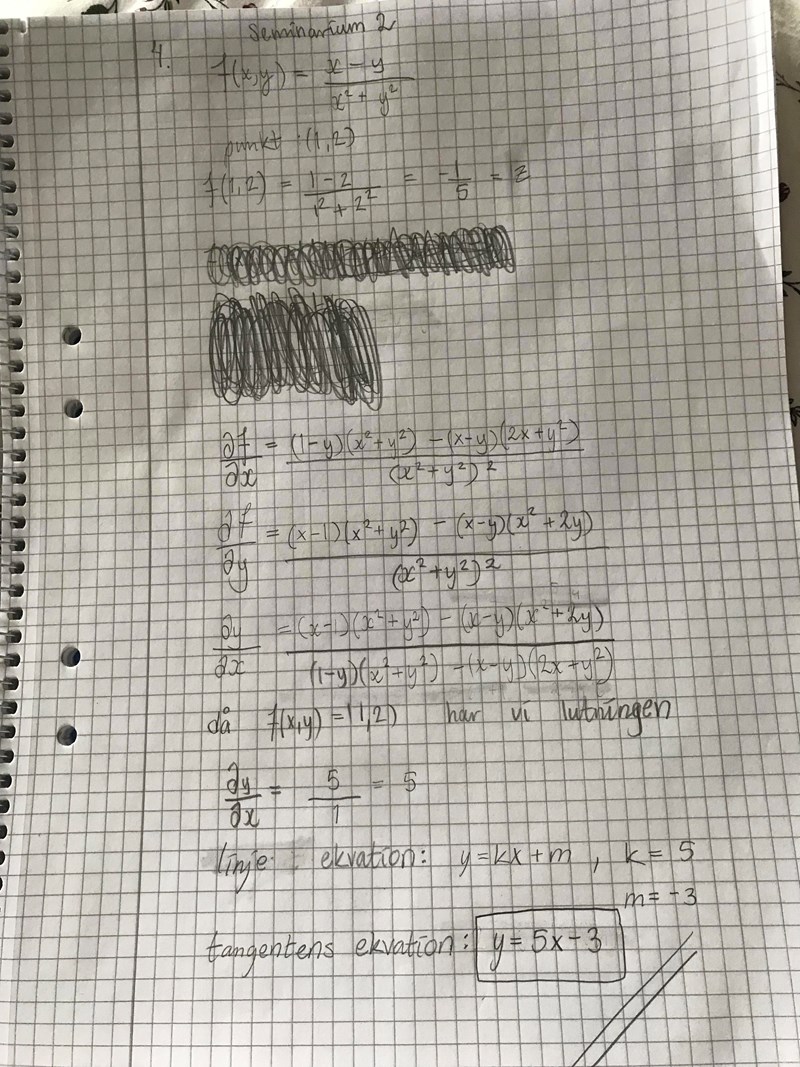 Seminarium 2
4.
f(x,y) = x - y / x² + y²
punkt (1,2)
f(1,2) = 1-2 / 1² + 2² = -1/5 = z
∂f/∂x = (1-y)(x²+y²) - (x-y)(2x+y²) / (x²+y²)²
∂f/∂y = (x-1)(x²+y²) - (x-y)(x²+2y) / (x²+y²)²
∂y/∂x = (x-1)(x²+y²) - (x-y)(x²+2y) / (1-y)(x²+y²) - (x-y)(2x+y²)
då f(x,y) = (1,2) har vi lutningen
∂y/∂x = 5/1 = 5
linje ekvation: y=kx+m, k = 5
m = -3
tangentens ekvation: y = 5x-3